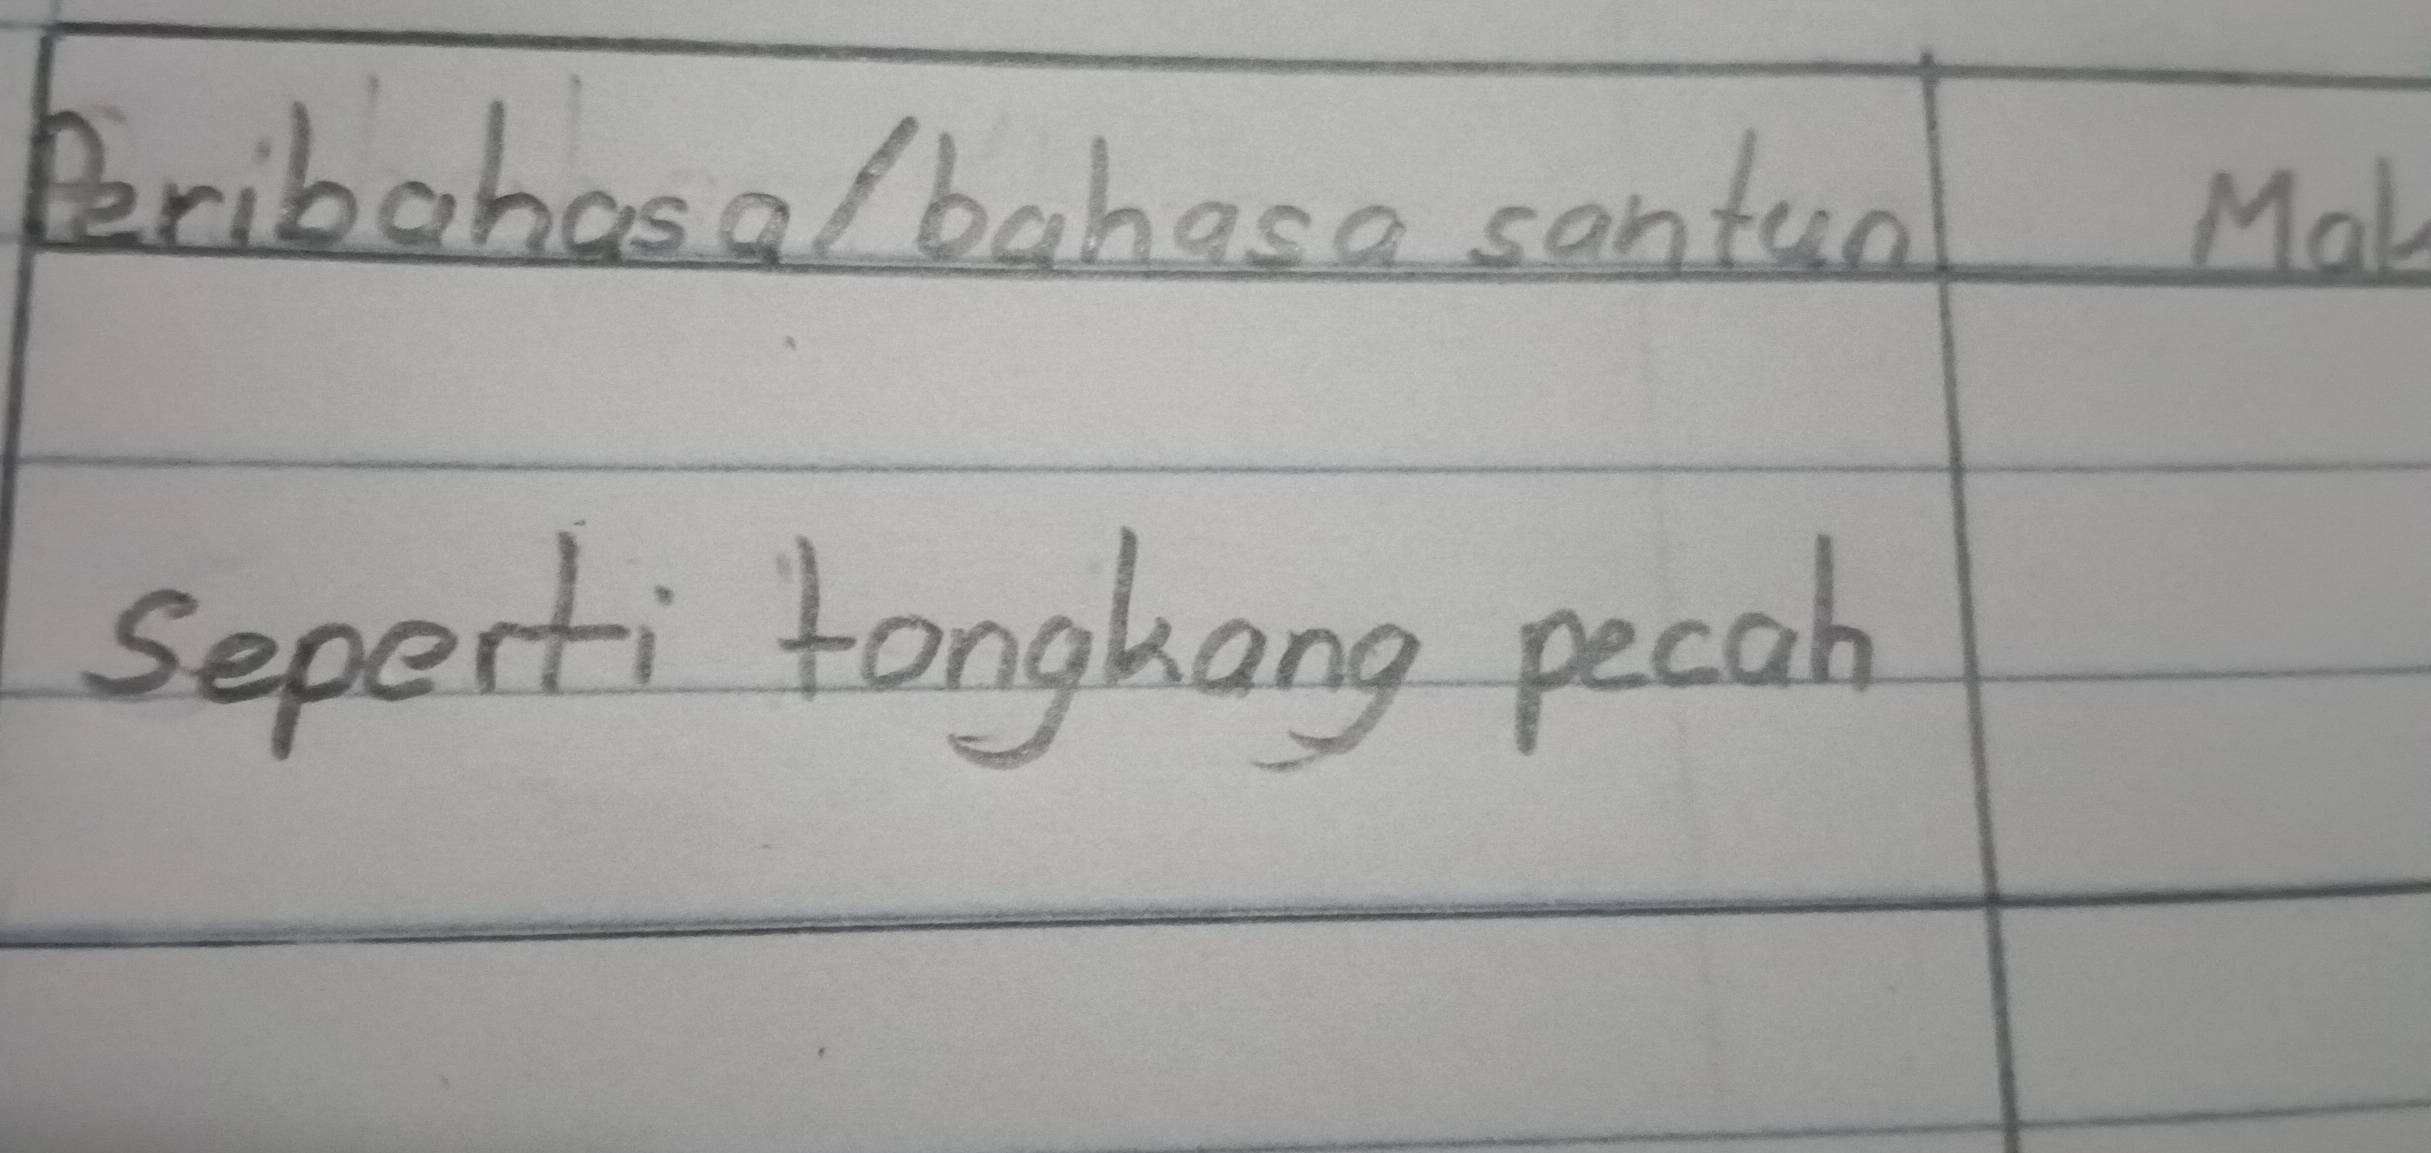 Peribahasa/bahasa santun
Mak
seperti tongkang pecah